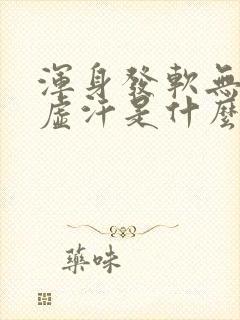 渾身發軟無
虛汗是什麼
藥味